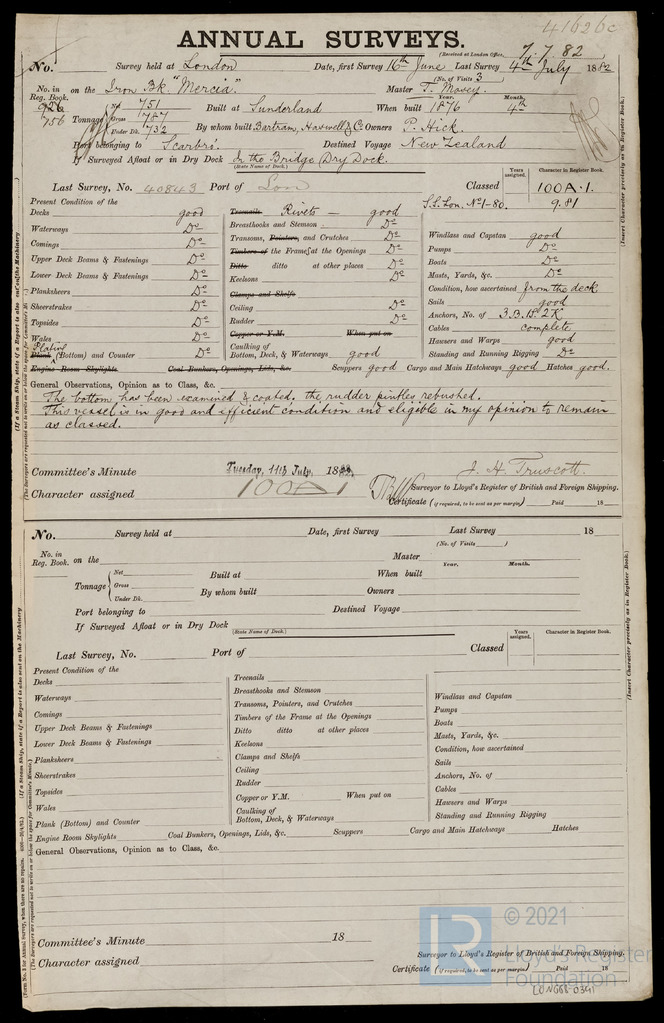 41626c
ANNUAL SURVEYS.
(Received at London Office, 7.7.82
No. Survey held at London Date, first Survey 16th June Last Survey 4th July 1882
(No. of Visits 3)
No. in Reg. Book. on the Iron Bk. "Mercia." Master T. Mosey.
926
756
Tonnage Net 751 Gross 787 Under Dk. 732
Built at Sunderland When built Year. 1876 Month. 4th
By whom built Bartram, Haswell & Co. Owners P. Hick.
Port belonging to Scarbro'. Destined Voyage New Zealand
If Surveyed Afloat or in Dry Dock In the Bridge Dry Dock.
(State Name of Dock.)
Last Survey, No. 40843 Port of Lon Classed Years assigned. Character in Register Book.
100A.1.
S.S.Lon. No1-80. 9.81
Present Condition of the
Decks good
Waterways Do
Comings Do
Upper Deck Beams & Fastenings Do
Lower Deck Beams & Fastenings Do
Planksheers Do
Sheerstrakes Do
Topsides Do
Wales Do
Plating
Plank (Bottom) and Counter Do
Treenails Rivets — good
Breasthooks and Stemson Do
Transoms, Pointers, and Crutches Do
Timbers of the Frame at the Openings Do
Ditto ditto at other places Do
Keelsons Do
Clamps and Shelfs
Ceiling Do
Rudder Do
Copper or Y.M. When put on
Caulking of Bottom, Deck, & Waterways good
Windlass and Capstan good
Pumps Do
Boats Do
Masts, Yards, &c. Do
Condition, how ascertained from the deck
Sails good
Anchors, No. of 3.B.1S.2K
Cables complete
Hawsers and Warps good
Standing and Running Rigging Do
Engine Room Skylights Coal Bunkers, Openings, Lids, &c. Scuppers good Cargo and Main Hatchways good Hatches good.
General Observations, Opinion as to Class, &c.
The bottom has been examined & coated. the rudder pintles rebushed.
This vessel is in good and efficient condition and eligible in my opinion to remain
as classed.
Committee's Minute Tuesday, 11th July, 1882.
J. H. Truscott.
Character assigned 100A1
Surveyor to Lloyd's Register of British and Foreign Shipping.
Certificate (if required, to be sent as per margin) Paid 18
No. Survey held at Date, first Survey Last Survey 18
(No. of Visits )
No. in Reg. Book. on the Master
Tonnage Net Gross Under Dk.
Built at When built Year. Month.
By whom built Owners
Port belonging to Destined Voyage
If Surveyed Afloat or in Dry Dock
(State Name of Dock.)
Last Survey, No. Port of Classed Years assigned. Character in Register Book.
Present Condition of the
Decks
Waterways
Comings
Upper Deck Beams & Fastenings
Lower Deck Beams & Fastenings
Planksheers
Sheerstrakes
Topsides
Wales
Plank (Bottom) and Counter
Treenails
Breasthooks and Stemson
Transoms, Pointers, and Crutches
Timbers of the Frame at the Openings
Ditto ditto at other places
Keelsons
Clamps and Shelfs
Ceiling
Rudder
Copper or Y.M. When put on
Caulking of Bottom, Deck, & Waterways
Windlass and Capstan
Pumps
Boats
Masts, Yards, &c.
Condition, how ascertained
Sails
Anchors, No. of
Cables
Hawsers and Warps
Standing and Running Rigging
Engine Room Skylights Coal Bunkers, Openings, Lids, &c. Scuppers Cargo and Main Hatchways Hatches
General Observations, Opinion as to Class, &c.
Committee's Minute 18
Character assigned
Surveyor to Lloyd's Register of British and Foreign Shipping.
Certificate (if required, to be sent as per margin) Paid 18
(Insert Character precisely as in Register Book.)
(Insert Character precisely as in Register Book.)
(If a Steam Ship, state if a Report is also sent on the Machinery
(The Surveyors are requested not to write on or below the space for Committee's Minute.)
LR
© 2021
Lloyd's Register
Foundation
LON668-0341